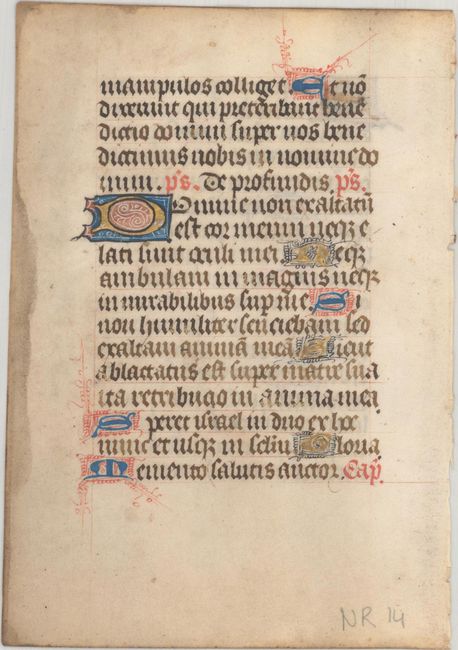 manipulos colliget. Et nō
dixerunt qui preteribant bene
dictio domini super vos bene
diximus nobis in nomine do
mini. ps. De profundis. ps.
Domine non exaltatū
est cor meum neqz e
lati sunt oculi mei Neqz
ambulavi in magnis neqz
in mirabilibus sup me. Si
non humiliter senciebam sed
exaltavi animā meā Sicut
ablactatus est super matre sua
ita retribucio in anima mea
Speret israel in dno ex hoc
nunc et usqz in sclm Gloria
Memento salutis auctor. Cap.
NR 14